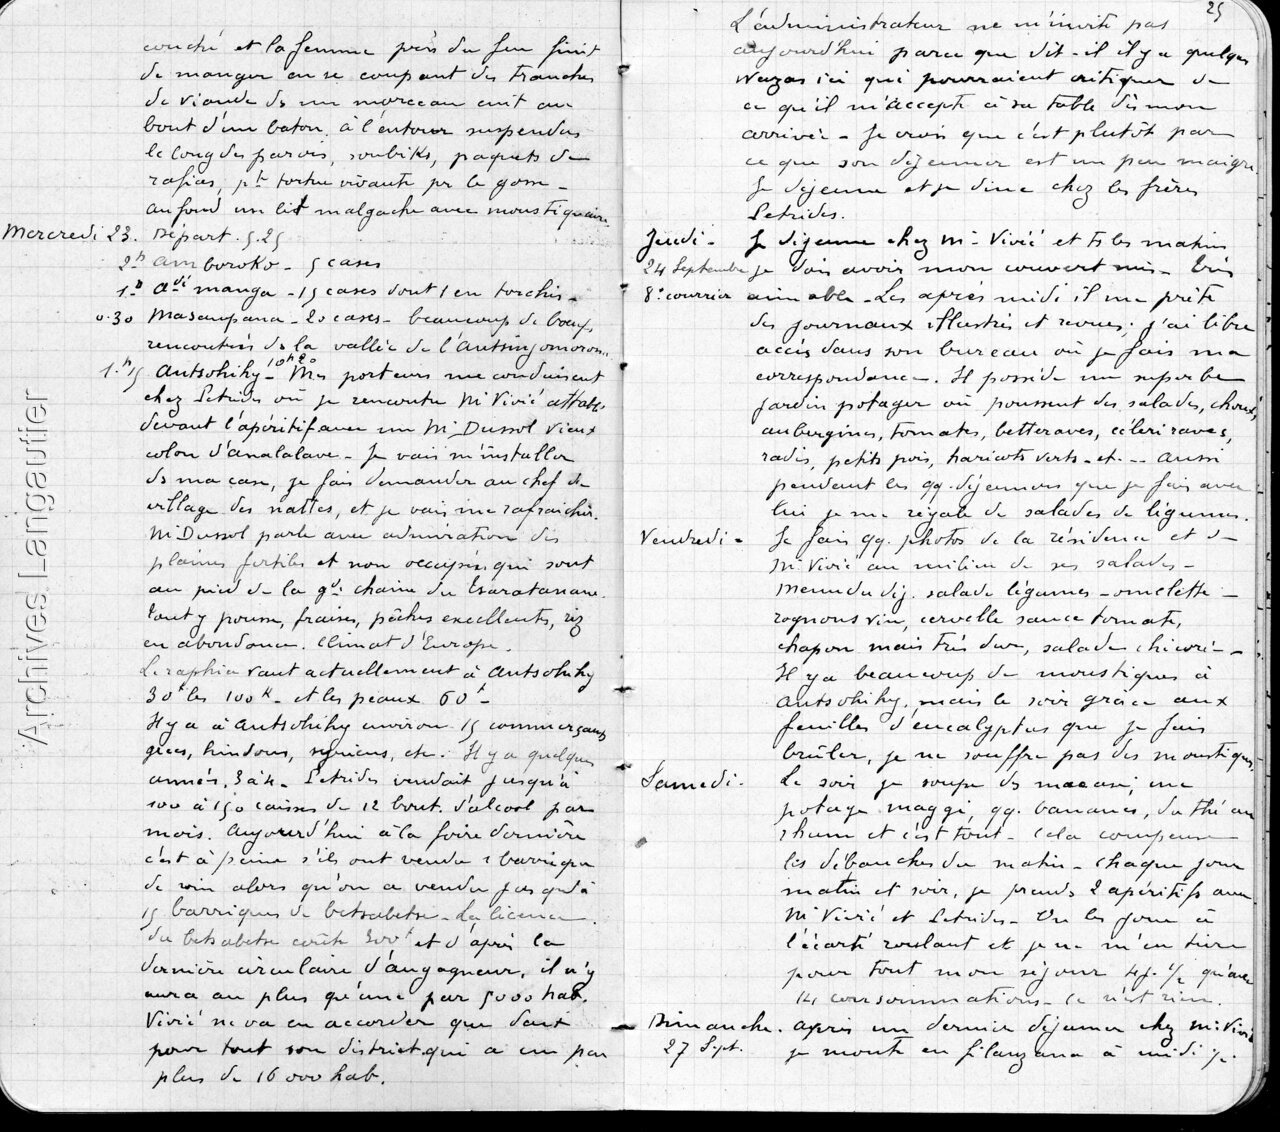 couché et la femme près du feu finit
de manger en se coupant des tranches
de viande ds un morceau cuit au
bout d'un baton. à l'entour suspendus
le long des parois, soubiks, paquets de
rafias, pte tortue vivante pr le gosse -
au fond un lit malgache avec moustiquaire
Mercredi 23. Départ. 5.25
2h Amboroko - 5 cases
1h manga - 15 cases dont 1 en torchis -
0.30 - 20 cases - beaucoup de bœufs
rencontrés ds la vallée de
1h15 Antsohihy - 10h20 Mes porteurs me conduisent
chez Petrides où je rencontre Mr Vivié attablé
devant l'apéritif avec un Mr Dussol vieux
colon d'Analalave - Je vais m'installer
ds ma case, je fais demander au chef de
village des nattes, et je vais me rafraichir.
Mr Dussol parle avec admiration des
plaines fertiles et non occupées qui sont
au pied de la gde chaine du Tsaratanana.
Tout y pousse, fraises, pêches excellentes, riz
en abondance. Climat d'Europe.
Le raphia vaut actuellement à Antsohihy
30f les 100k - et les peaux 60f -
Il y a à Antsohihy environ 15 commerçants
grecs, hindous, syriens, etc. Il y a quelques
années, 3 à 4 - Petrides vendait jusqu'à
100 à 150 caisses de 12 bout. d'alcool par
mois. Aujourd'hui à la foire dernière
c'est à peine s'ils ont vendu 1 barrique
de vin alors qu'on a vendu jusqu'à
15 barriques de betsabetsa - La licence
du betsabetsa coûte 300f et d'après la
dernière circulaire d'Augagneur, il n'y
aura au plus qu'une par 5000 hab.
Vivié ne va en accorder que
pour tout son district qui a un peu
plus de 16 000 hab.
25
L'administrateur ne m'invite pas
aujourd'hui parce que dit-il il y a quelques
vazas ici qui pourraient critiquer de
ce qu'il m'accepte à sa table dès mon
arrivée - Je crois que c'est plutôt par
ce que son déjeuner est un peu maigre.
Je déjeune et je dine chez les frères
Petrides.
Jeudi - Je déjeune chez Mr Vivié et ts les matins
24 Septembre je dois avoir mon couvert mis - Très
8e courrier aimable - Les après midi il me prête
des journaux illustrés et revues; j'ai libre
accès dans son bureau où je fais ma
correspondance. Il possède un superbe
jardin potager où poussent des salades, choux,
aubergines, tomates, betteraves, céleri raves,
radis, petits pois, haricots verts - etc -- Aussi
pendant les qq. déjeuners que je fais avec
lui je me régale de salades de légumes.
Vendredi - Je fais qq. photos de la résidence et de
Mr Vivié au milieu de ses salades -
Menu du déj. salade légumes - omelette -
rognons vin, cervelle sauce tomate,
chapon mais très dur, salade chicorée -
Il y a beaucoup de moustiques à
Antsohihy, mais le soir grâce aux
feuilles d'eucalyptus que je fais
brûler, je ne souffre pas des moustiques.
Samedi. Le soir je soupe ds ma case, un
potage maggi, qq. bananes, du thé au
rhum et c'est tout - Cela compense
les débauches du matin - Chaque jour
matin et soir, je prends 2 apéritifs avec
Mr Vivié et Petrides - On les joue à
l'écarté roulant et je ne m'en tire
pour tout mon séjour qu'avec
14 consommations - ce n'est rien.
Dimanche. Après un dernier déjeuner chez Mr Vivié
27 Sept. je monte en filanzana à midi ½
Archives Lanigautier